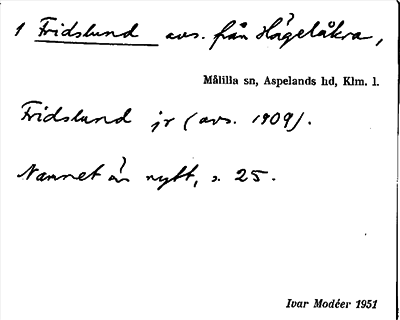 1 Fridslund avs. från Hågelåkra,
Målilla sn, Aspelands hd, Klm. l.
Fridslund jr (avs. 1909).
Namnet är nytt, s. 25.
Ivar Modéer 1951